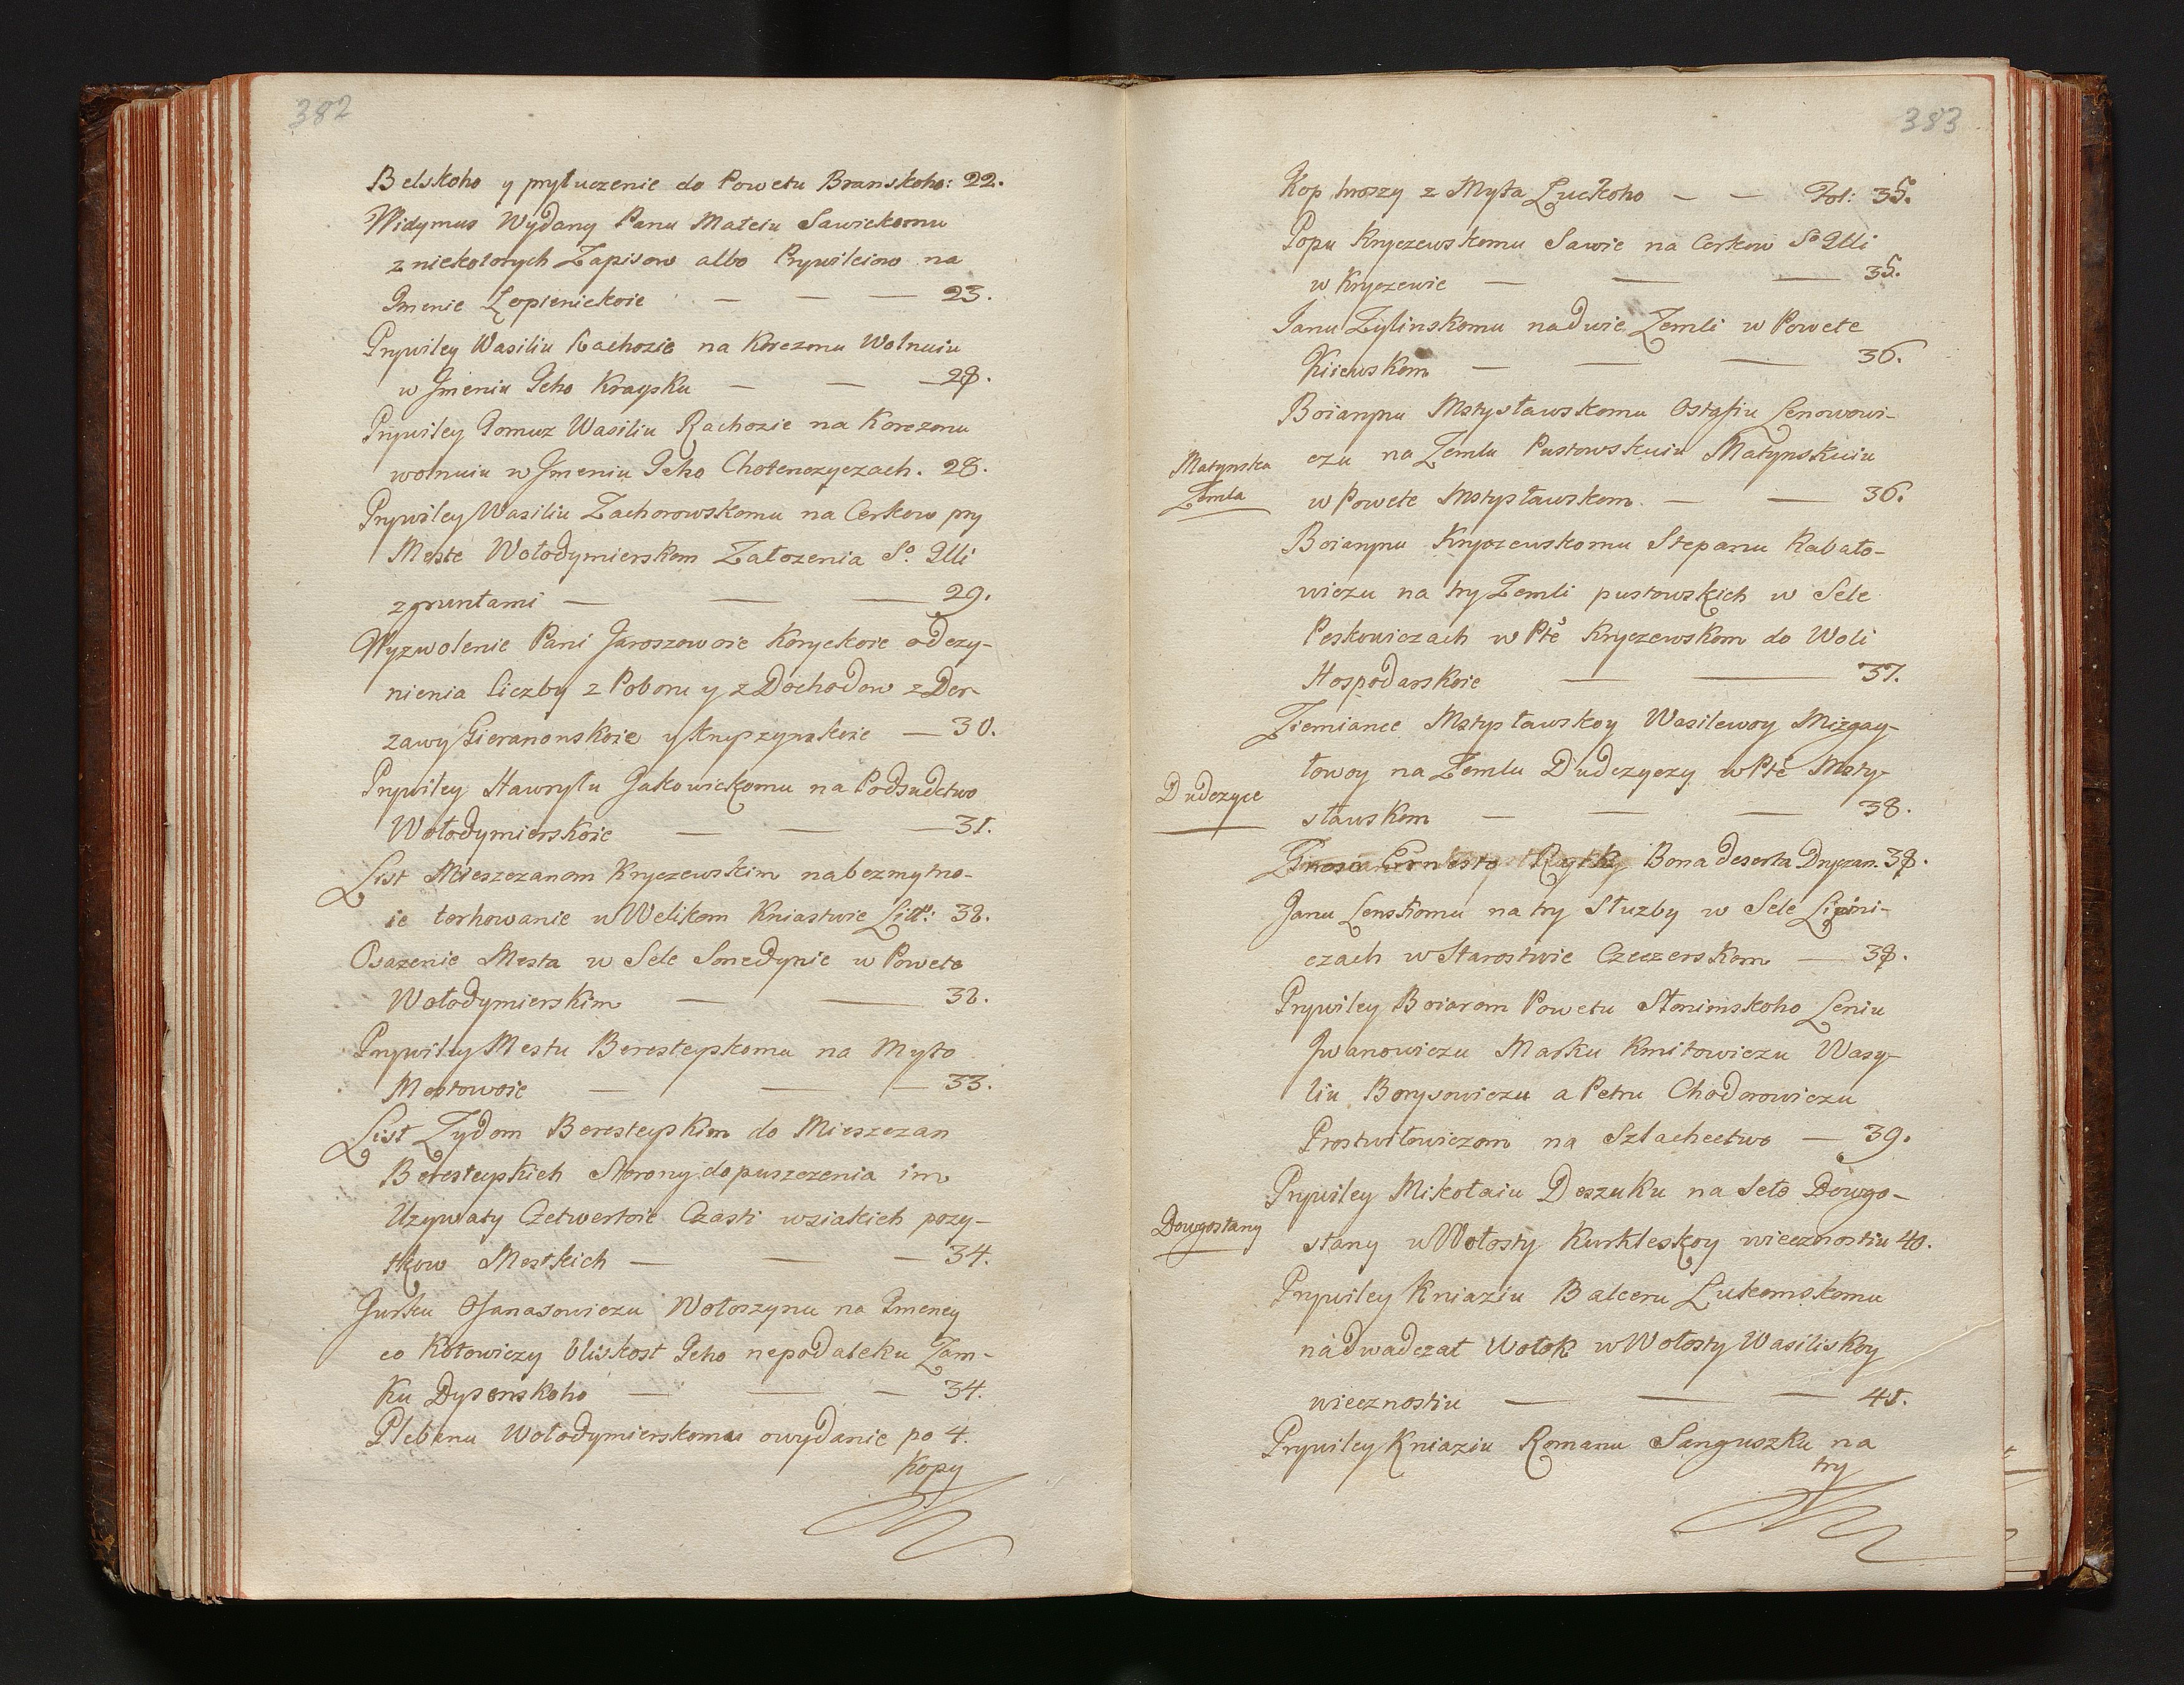 382
Belskoho y pryłuczenie do Powetu Branskoho: 22.
Widymus Wydany Panu Mateiu Sawickomu
z niekotorych Zapisow albo Prywileiow na
Jmenie Łopienickoie — — — 23.
Prywiley Wasiliu Rachozie na Korczmu Wolnuiu
w Jmeniu Jeho Kraysku — — — 28.
Prywiley Tomuz Wasiliu Rachozie na Korczmu
wolnuiu w Jmeniu Jeho Chotenczyczach. 28.
Prywiley Wasiliu Zachorowskomu na Cerkow pry
Meste Wołodymierskom Założenia So. Illi
z gruntami — — — 29.
Wyzwolenie Pani Jaroszowoie Koryckoie od czy-
nienia Liczby z Poboru y z Dochodow z Der-
zawy Gieranonskoie y Knyszynskoie — 30.
Prywiley Hawryłu Jakowickomu na Podsudstwo
Wołodymierskoie — — — 31.
List Mieszczanom Kryczewskim na bezmytno-
ie torhowanie w Welikom Kniastwie Litt: 32.
Osazenie Mesta w Sele Smedynie w Powete
Wołodymierskim — — 32.
Prywiley Mestu Beresteyskomu na Myto
Mostowoie — — — 33.
List Zydom Beresteyskim do Mieszczan
Beresteyskich Storony dopuszczenia im
Uzywaty Czetwertoie Czasti wsiakich pozy-
tkow Mestkich — — — 34.
Jurku Ofanasowiczu Wołoszynu na Jmeney
co Kotowiczy Bliskost Jeho nepodaleku Zam-
ku Dysenskoho — — — 34.
Plebanu Wołodymierskomu o wydanie po 4.
Kopy
383
Kop hroszy z Myta Łuckoho — — Fol: 35.
Popu Kryczewskomu Sawie na Cerkow So Illi
w Kryczewie — — — 35.
Janu Zylinskomu na dwie Zemli w Powete
Kiiewskom — — — 36.
Boiarynu Mstysławskomu Ostafiu Senowowi-
czu na Zemlu Pustowskuiu Matynskuiu
Matynska
Zemla
w Powete Mstysławskom. — — 36.
Boiarynu Kryczewskomu Stepanu Kabato-
wiczu na try Zemli pustowskich w Sele
Peskowiczach w Pte Kryczewskom do Woli
Hospodarskoie — — 37.
Ziemiance Mstysławskoy Wasilewoy Mizgay-
łowoy na Zemlu Dudczyczy w Pte Msty-
Dudczyce
sławskom — — — 38.
Bona deserta Dryczan. 38.
Janu Lenskomu na try Słuzby w Sele Lipini-
czach w Starostwie Czeczerskom — 38.
Prywiley Boiarom Powetu Słonimskoho Leniu
Jwanowiczu Marku Kmitowiczu Wasy-
liu Borysowiczu a Petru Chodorowiczu
Prostwiłowiczom na Szlachectwo — 39.
Prywiley Mikołaiu Doszuku na Seło Dowgo-
Dowgostany
stany w Wołosty Kurkleskoy wiecznostiu 40.
Prywiley Kniaziu Balceru Łukomskomu
na dwadczat Wołok w Wołosty Wasiliskoy
wiecznostiu — — — 41.
Prywiley Kniaziu Romanu Sanguszku na
try